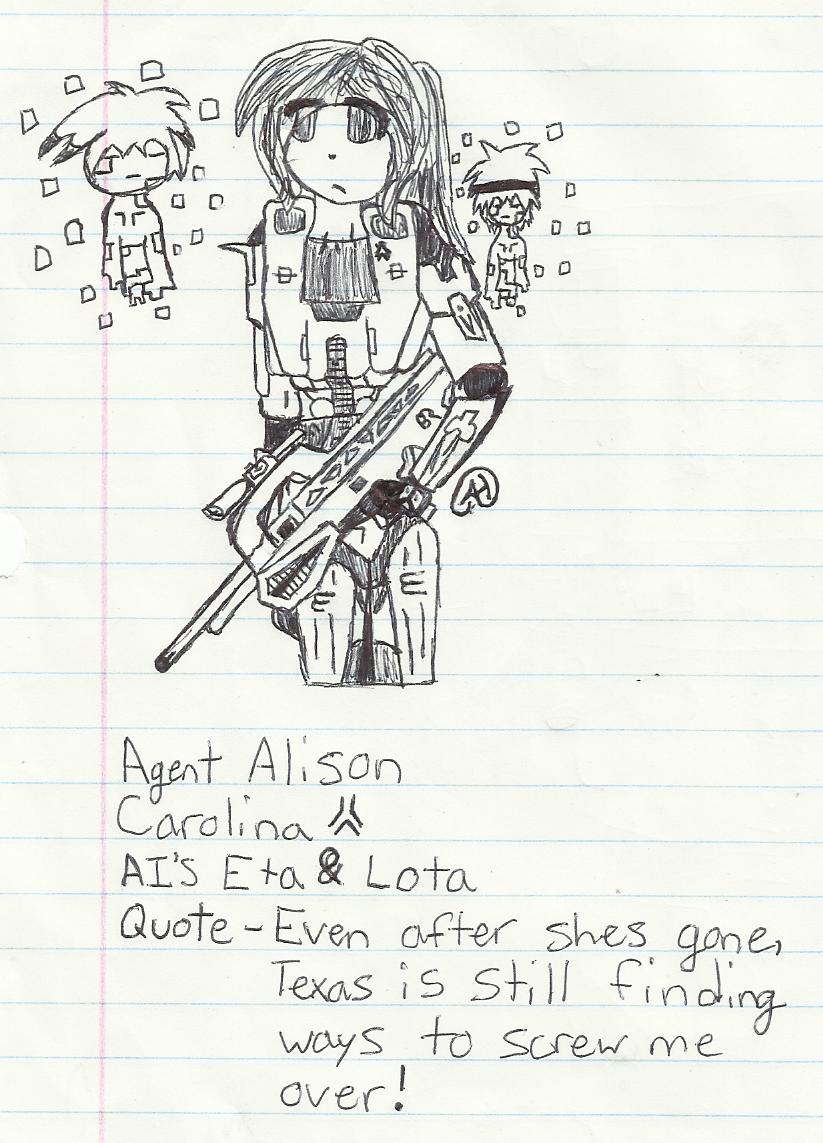 Agent Alison
Carolina
AI'S Eta & Lota
Quote - Even after shes gone,
Texas is still finding
ways to screw me
over!